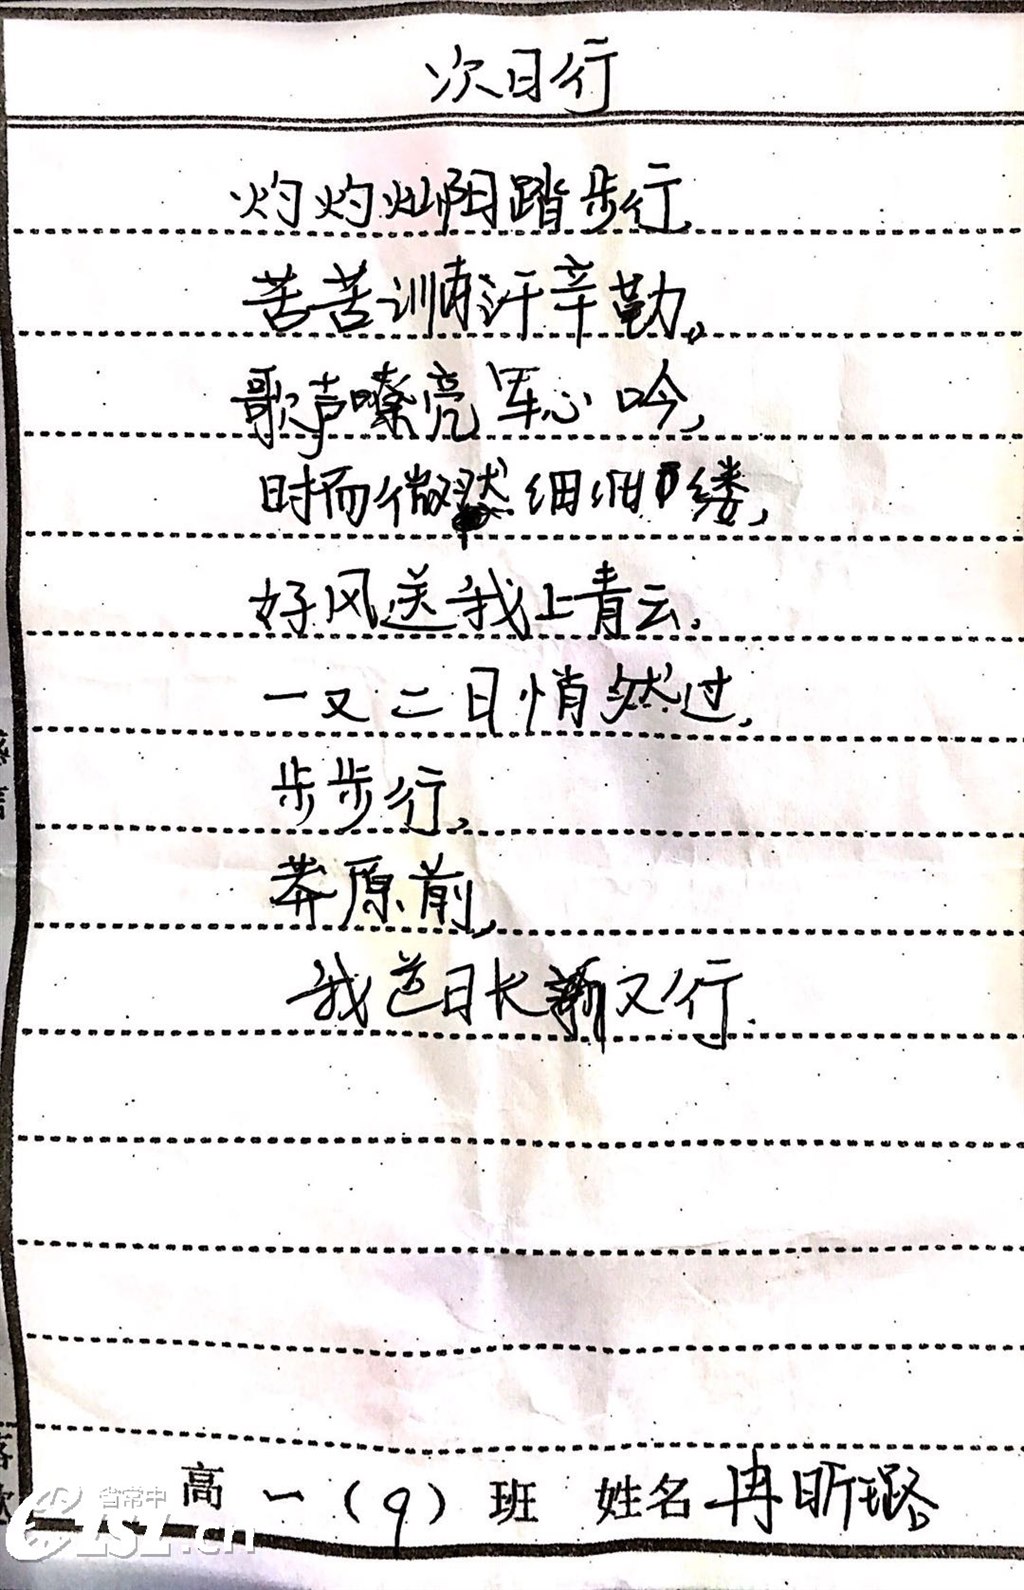 次日行
灼灼灿阳踏步行,
苦苦训有汗辛勤。
歌声嗓亮军心吟,
时而微然细细缕,
好风送我上青云,
一又二日悄然过,
步步行,
莽原前,
我 日长 又行.
高一(9)班 姓名 冉昕璐
省常中
CZSZ.cn